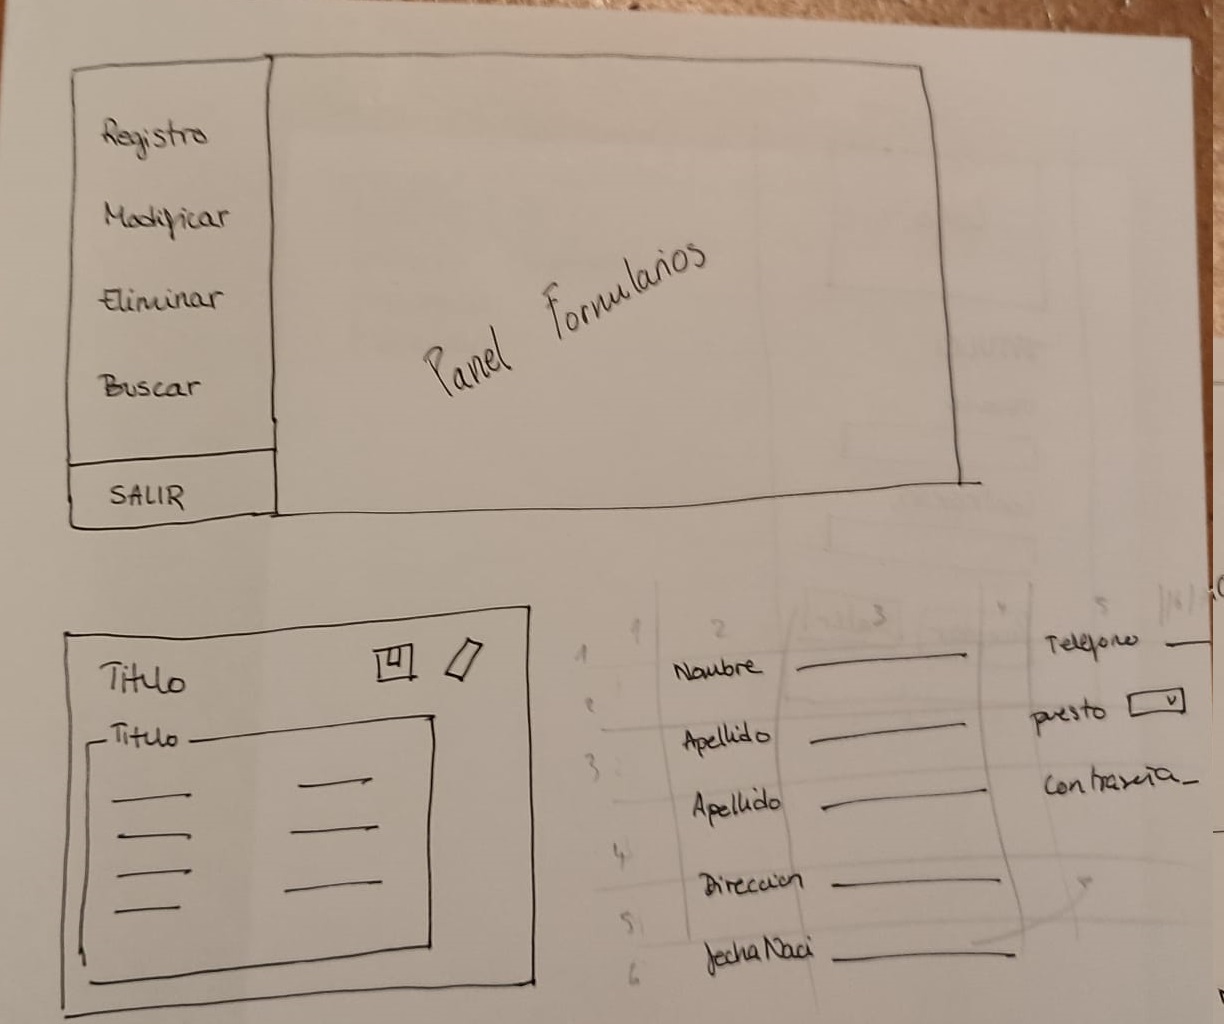 Registro
Modificar
Eliminar
Buscar
SALIR
Panel Formularios
Titulo
Titulo
1 2 3 4 5
1
2
3
4
5
6
Nombre
Apellido
Apellido
Direccion
fecha Naci
Telefono
puesto
contraseña